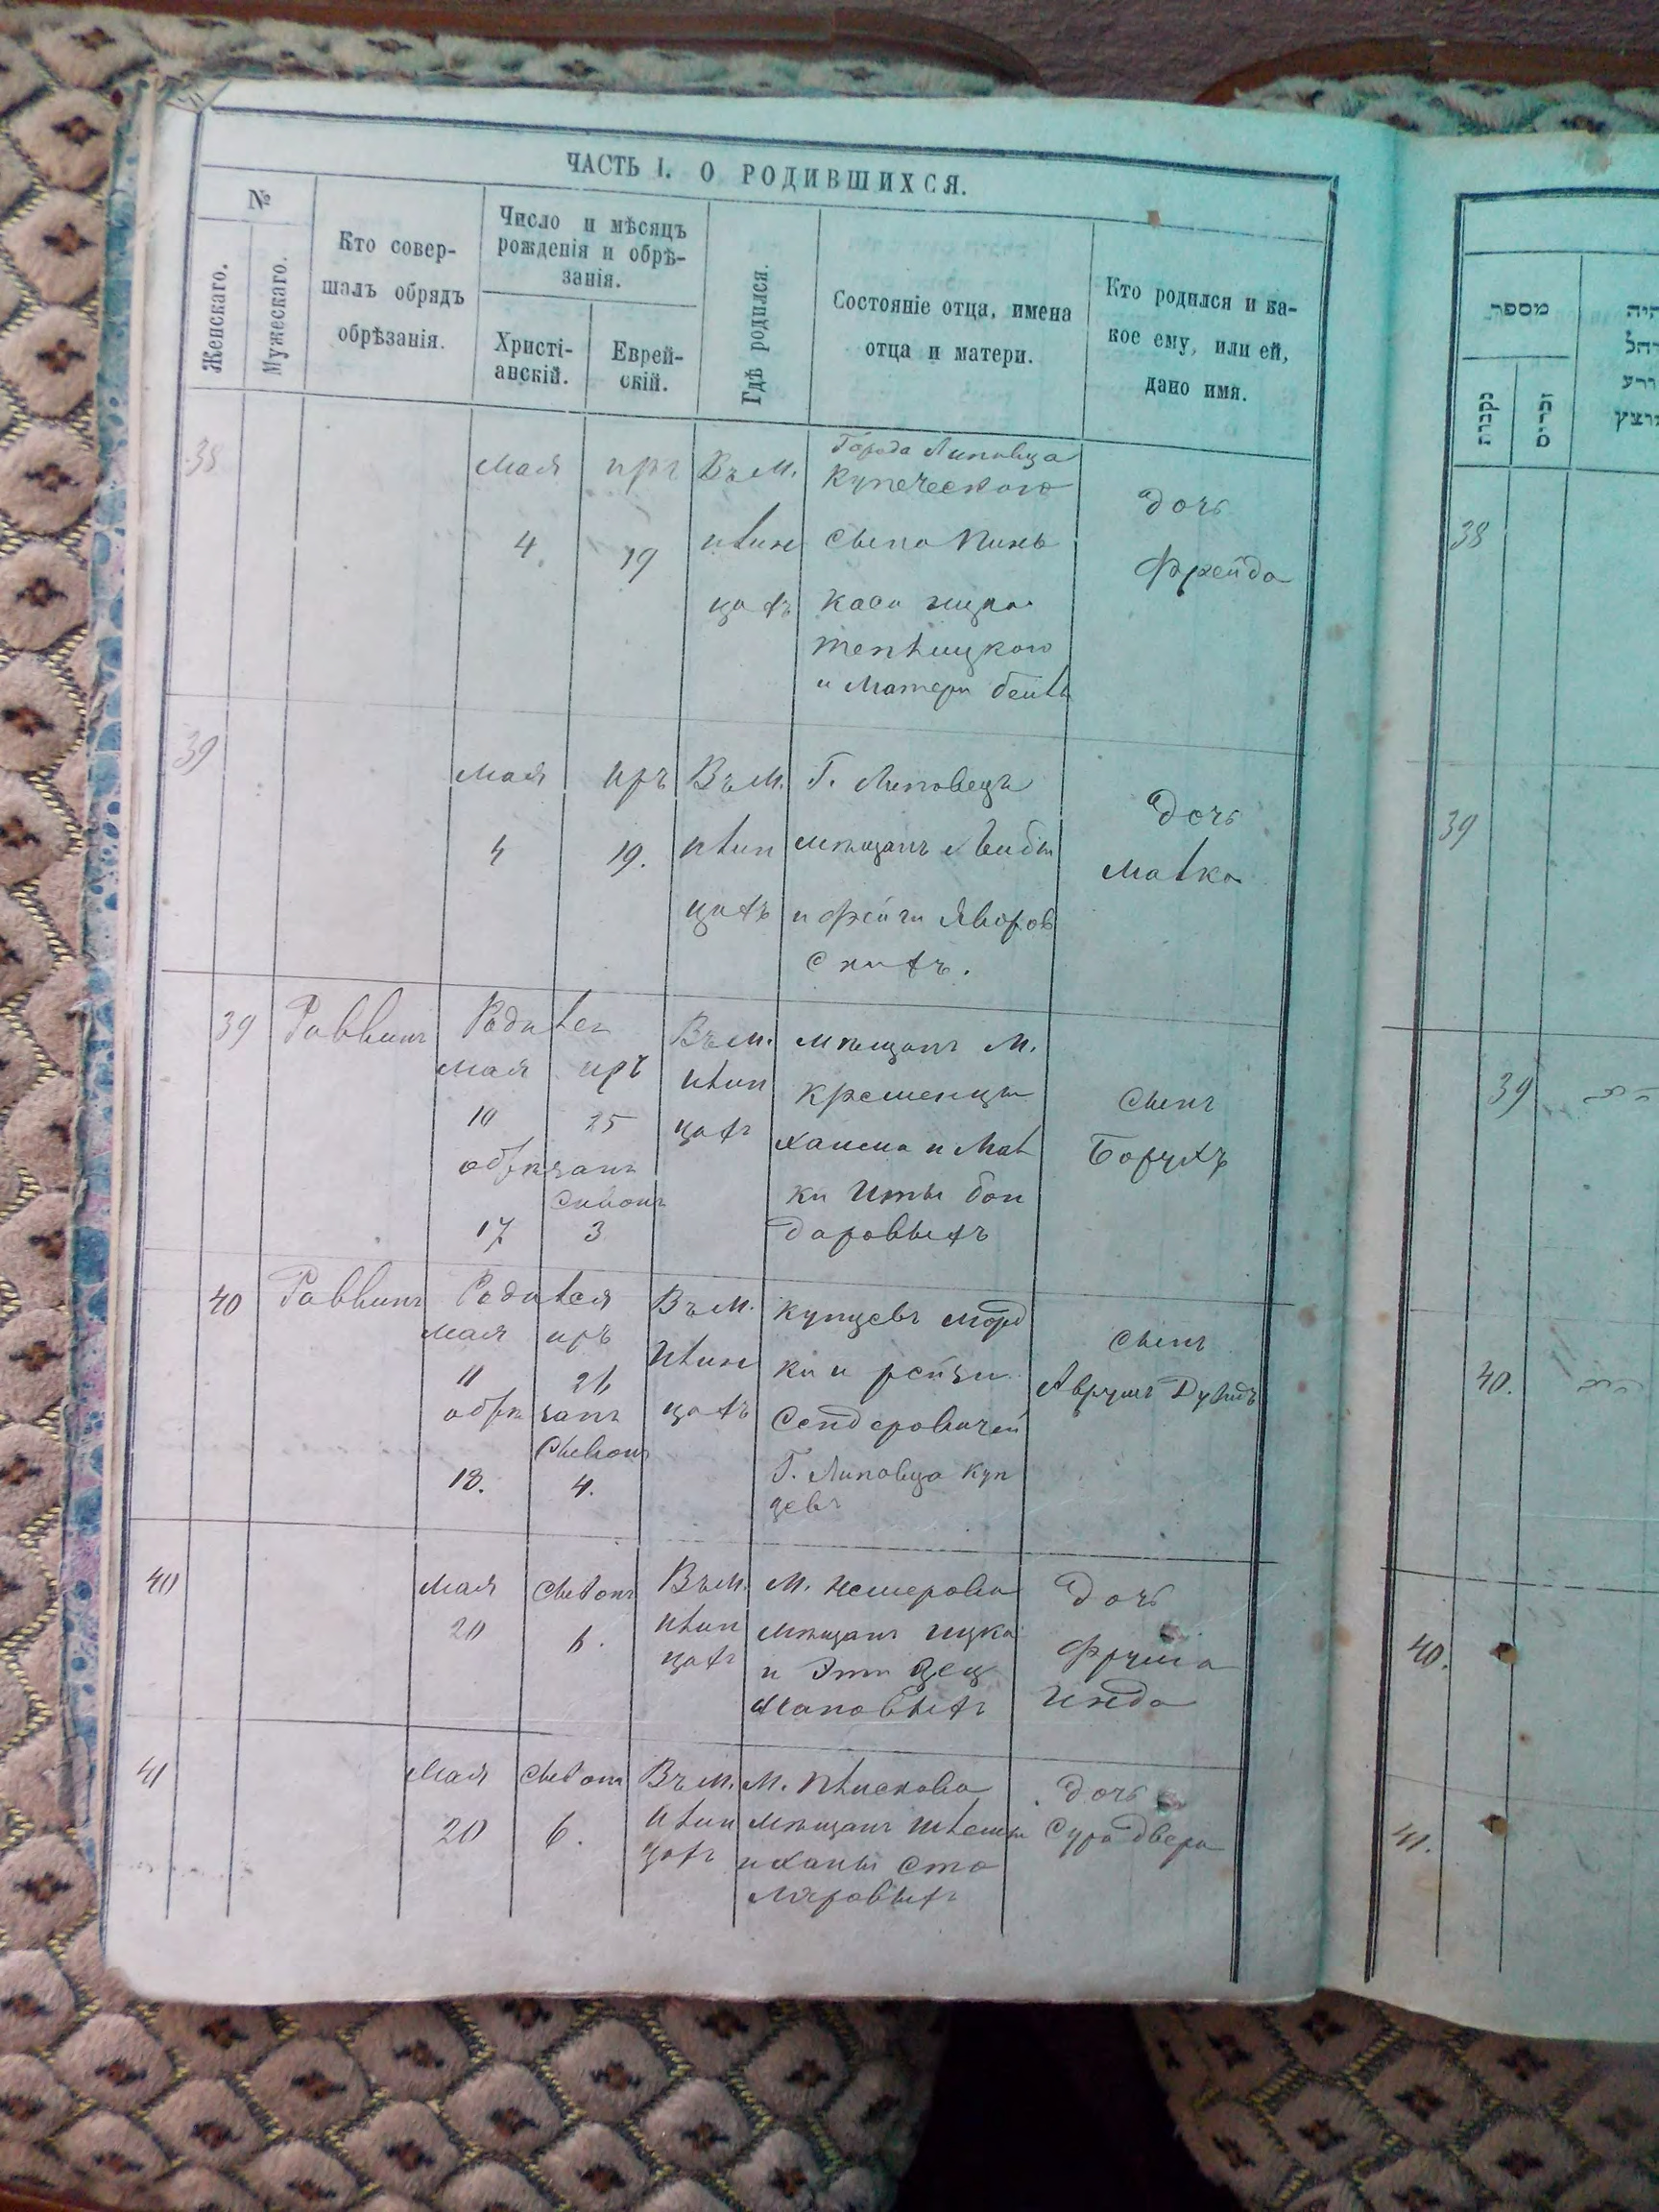 ЧАСТЬ I. О РОДИВШИХСЯ.
№
Женскаго.
Мужескаго.
Кто совер-
шалъ обрядъ
обрѣзанія.
Число и мѣсяцъ
рожденія и обрѣ-
занія.
Христі-
анскій.
Еврей-
скій.
Гдѣ родился.
Состояніе отца, имена
отца и матери.
Кто родился и ка-
кое ему, или ей,
дано имя.
38
Мая
4
иръ
19
Въ м.
илин
цахъ
Города Липовца
Купеческого
сына Пинь
каса Ицка
и Матери
дочь
Фрейда
39
Мая
4
иръ
19.
Въ М.
илин
цахъ
Г. Липовецъ
мѣщанъ Лейбы
и Фейги Яворов
скихъ.
дочь
Малка
39
Раввинъ
Родился
Мая иръ
10 25
обрѣзанъ
Сивонъ
17 3
Въ М.
илин
цахъ
мѣщанъ М.
Хаима и Мал
ки Иты бон
даровыхъ
Сынъ
Борухъ
40
Раввинъ
Родился
Мая иръ
11 26
обрѣзанъ
Сывонъ
18. 4.
Въ М.
Илин
цахъ
купцевъ Морд
ки и рейзи
Сендеровичей
Г. Липовца куп
цевъ
сынъ
Аврумъ Дувидъ
40
Мая
20
Сывонъ
6.
Въ М.
илин
цахъ
М. Немерова
мѣщанъ Ицка
и Эти
дочь
Фрума
Инда
41
Мая
20
Сывонъ
6.
Въ М.
илин
цахъ
М. Плискова
мѣщанъ Шлемы
и Ханы Сто
ляровыхъ
дочь
Сура Двера
מספר
נקבות
זכרים
38
39
39
40.
40.
41.